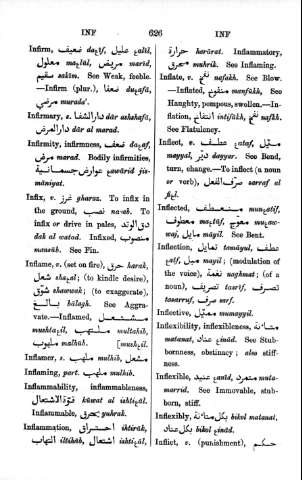 INF 626 INF
Infirm, ضعيف daɛíf, عليل ɛalíl,
معلول maɛlúl, مريض maríd,
سقيم sakím. See Weak, feeble.
—Infirm (plur.), ضعفا duɛafá,
مرضي murada'.
Infirmary, s. دار الشفا dár ashshafá,
دار المرض dár al marad.
Infirmity, infirmness, ضعف daɛaf,
مرض marad. Bodily infirmities,
عوارض جسمانية ɛawárid jis-
mániyat.
Infix, v. غرس gharsa. To infix in
the ground, نصب na-ab. To
infix or drive in pales, دق الوتد
dak al watad. Infixed,
منصوب mansúb. See Fix.
Inflame, v. (set on fire), حرق harak,
شعل shaɛal; (to kindle desire),
شوق shawwak; (to exaggerate),
بالغ bálagh. See Aggra-
vate.—Inflamed, مشتعل
mushtaɛil, ملتهب multahib,
ملهوب malhúb. [mushɛil.
Inflamer, s. ملهب mulhib, مشعل
Inflaming, part. ملهب mulhib.
Inflammability, inflammableness,
قوة الاشتعال kúwat al ishtiɛál.
Inflammable, يحرق yuhrak.
Inflammation, احتراق ihtiráh,
التهاب iltiháb, اشتعال ishtiɛál,
حرارة harárat. Inflammatory,
محرق muhrik. See Inflaming.
Inflate, v. نفخ nafakh. See Blow.
—Inflated, منفوخ manfúkh, See
Haughty, pompous, swollen.—In-
flation, انتفاخ intifákh, نفخ nafkh.
See Flatulency.
Inflect, v. عطف ɛataf, ميّل
mayyal, ديّر dayyar. See Bend,
turn, change.—To inflect (a noun
or verb), صرف الفعل sarraf al
fiɛl.
Inflected, منعطف munɛatif,
معطوف maɛtúf, معوج muɛaw-
waj, مايل máyil. See Bent.
Inflection, تمايل tamáyul, عطف
ɛatf, ميل mayl; (modulation of
the voice), نغمة naghmat; (of a
noun), تصريف tasríf, تصرف
tasarruf, صرف sarf.
Inflective, مميّل mumayyil.
Inflexibility, inflexibleness, متانة
matanat, عناد ɛinád. See Stub-
bornness, obstinacy; also stiff-
ness.
Inflexible, عنيد ɛaníd, متمرد muta-
marrid. See Immovable, stub-
born, stiff.
Inflexibly, بكل متانة bikol matanat,
بكل عناد bikol ɛinád.
Inflict, v. (punishment), حكم